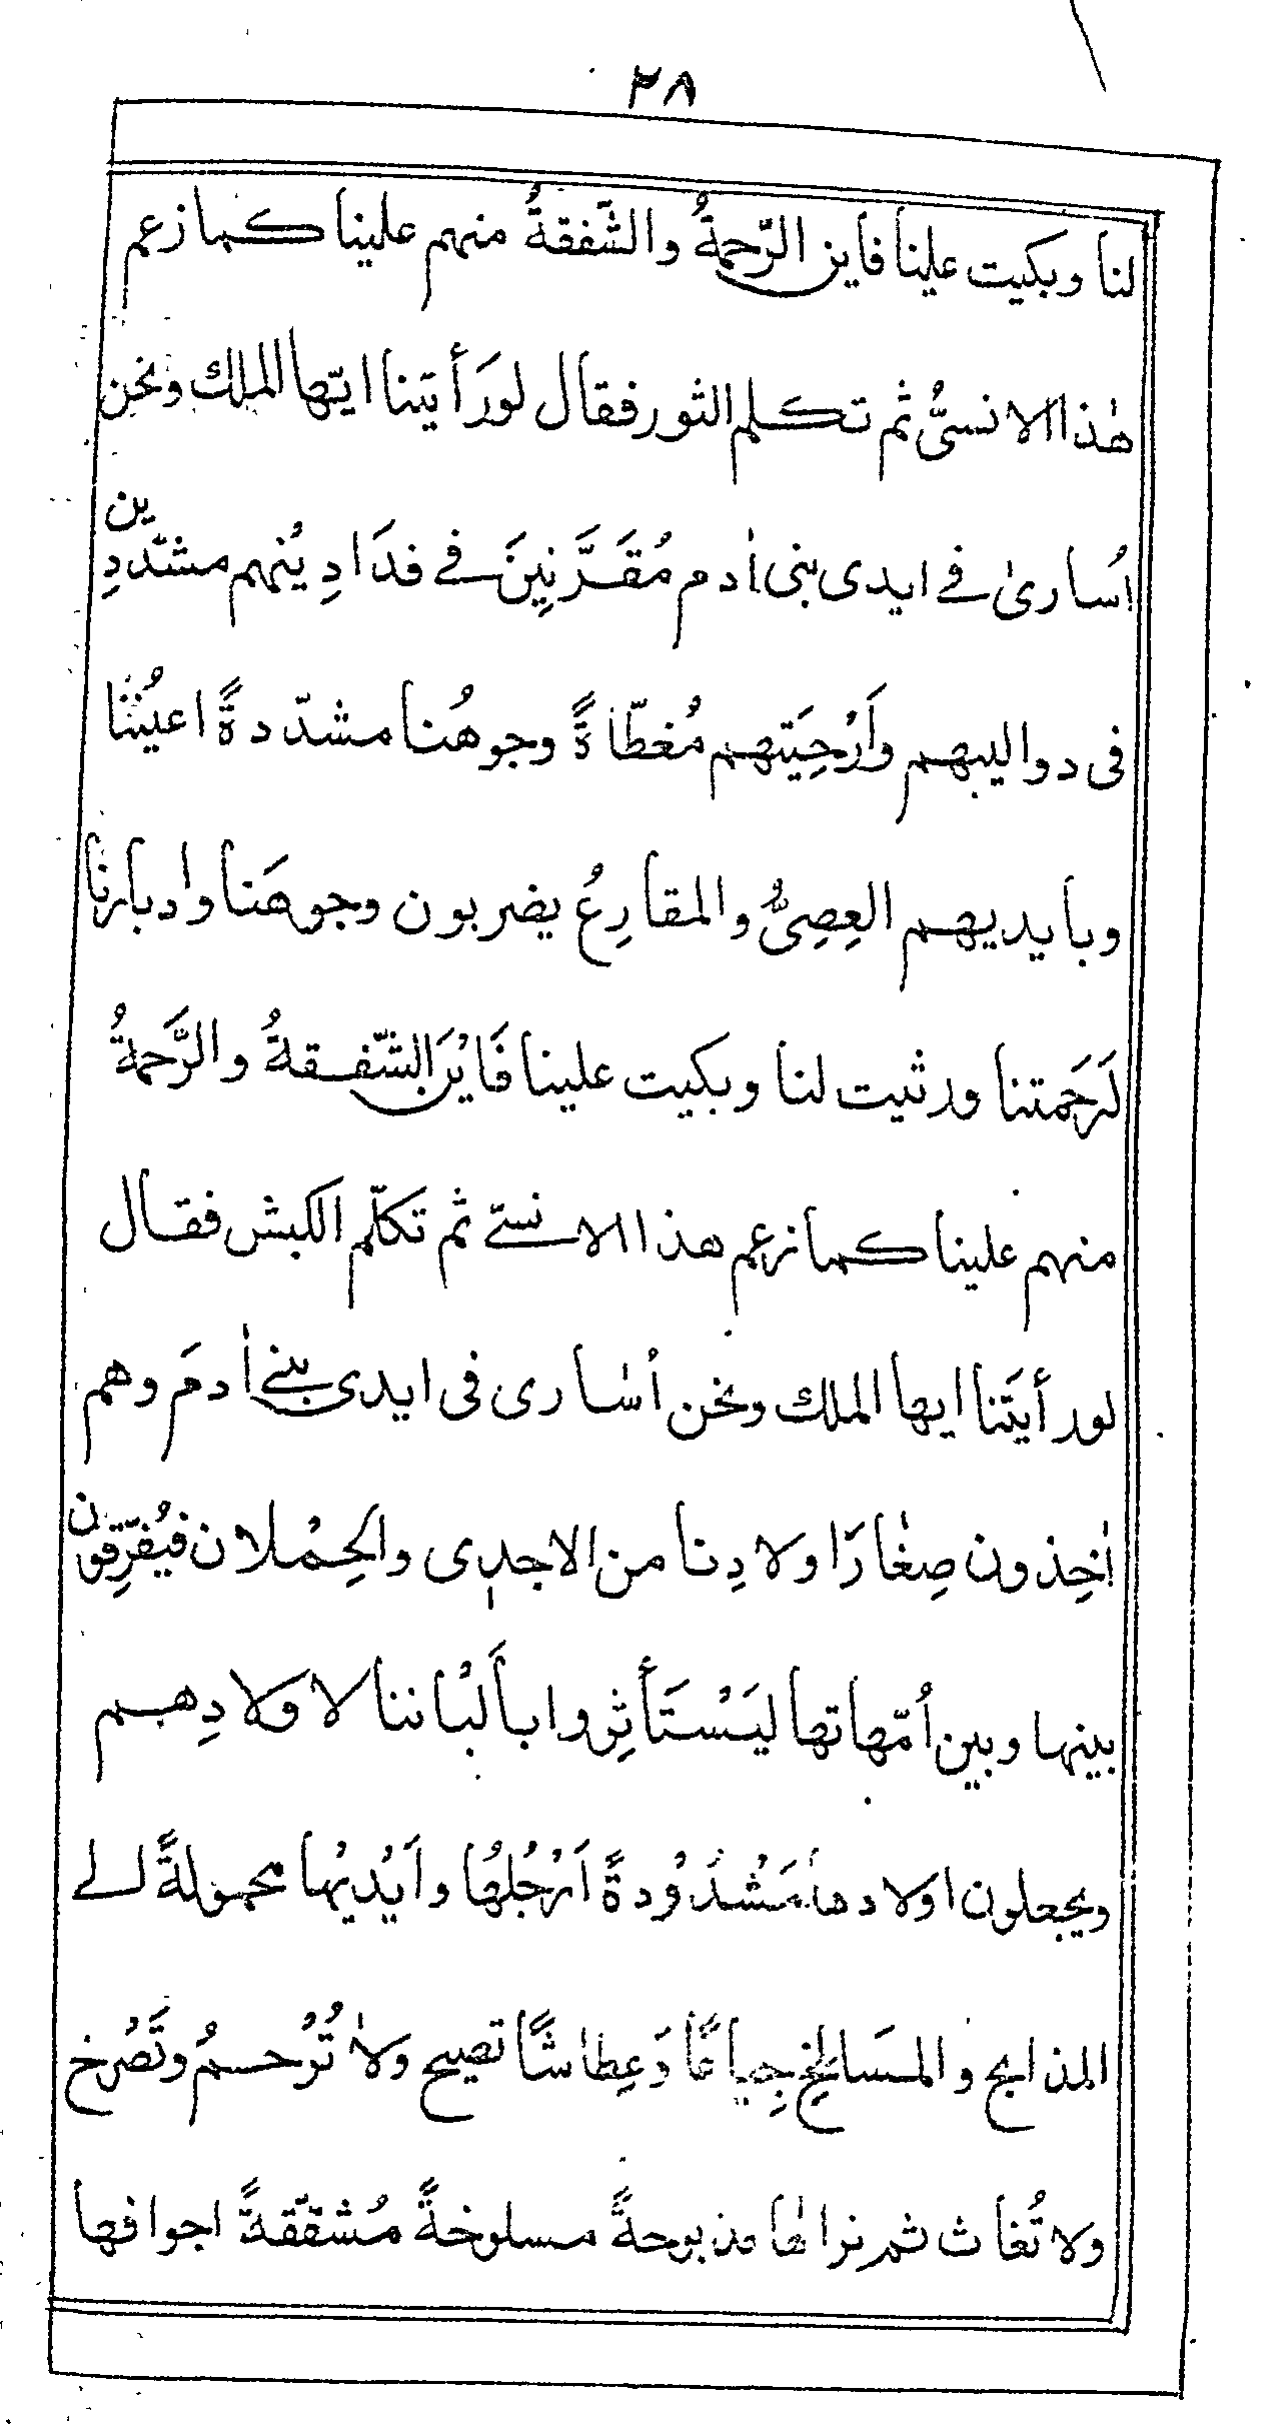 ٢٨
لنا وبكيت علينا فاين الرّحمةُ والشّفقةُ منهم علينا كما زعم
هٰذا الانسىُّ ثم تكلم الثور فقال لورَأيتنا ايّها الملك ونحن
اُسارىٰ فے ايدى بنى اٰدم مُقَرَّنِينَ فے فدَادِ يُنهم مشدّدِين
فى دواليبهم وَاَرْحِيَتهم مُغطّاةً وجوهُنا مشدّدةً اعيُنُنا
وبايديهم العِصِىُّ والمقارِعُ يضربون وجوهَنا وادبارنا
لَرحَمتنا ورثيت لنا وبكيت علينا فَايْنَ الشّفقةُ والرَّحمةُ
منهم علينا كما زعم هذا الانسےّ ثم تكلّم الكبش فقال
لورأيتَنا ايها الملك ونحن اُسٰارى فى ايدى بنے اٰدمَ وهم
اٰخِذون صِغٰارَا ولادِنا من الاجدِى والحِمْلان فيُفرِّقون
بينها وبين اُمّهاتها ليَسْتَأثِروا بأَلبْاننا لاولادِهم
ويجعلون اولادهاٰ مَشْدُوْدةً اَرْجُلهُا واَيْديْها محمولةً الے
المذابح والمسَالخِ جِياعًا وَعِطاشًا تصيح ولاٰ تُرْحمُ وتَصْرخ
ولا تُغاث ثم نراهٰا مذبوحةً مسلوخةً مُشقّقةً اجوافها